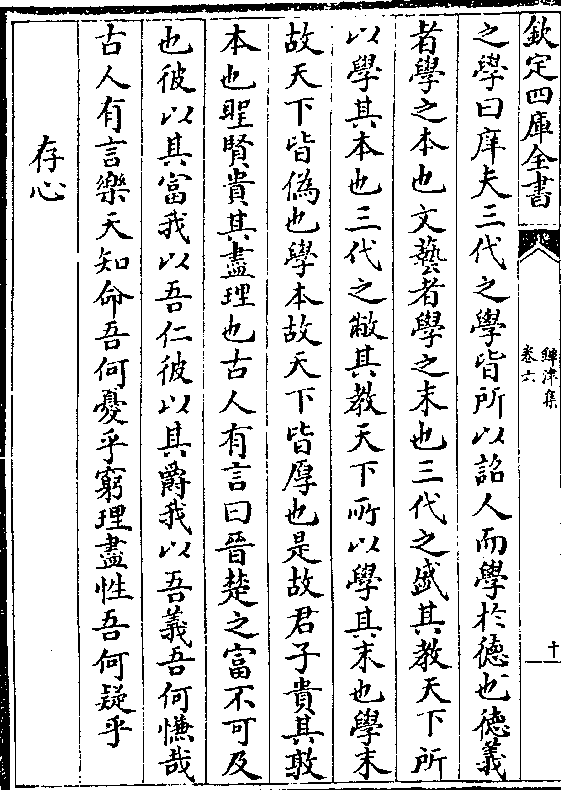 欽定四庫全書
鐔津集
卷六
十
之學曰庠夫三代之學皆所以詔人而學於德也德義
者學之本也文藝者學之末也三代之盛其教天下所
以學其本也三代之敝其教天下所以學其末也學末
故天下皆偽也學本故天下皆厚也是故君子貴其敦
本也聖賢貴其盡理也古人有言曰晉楚之富不可及
也彼以其富我以吾仁彼以其爵我以吾義吾何慊哉
古人有言樂天知命吾何憂乎窮理盡性吾何疑乎
存心